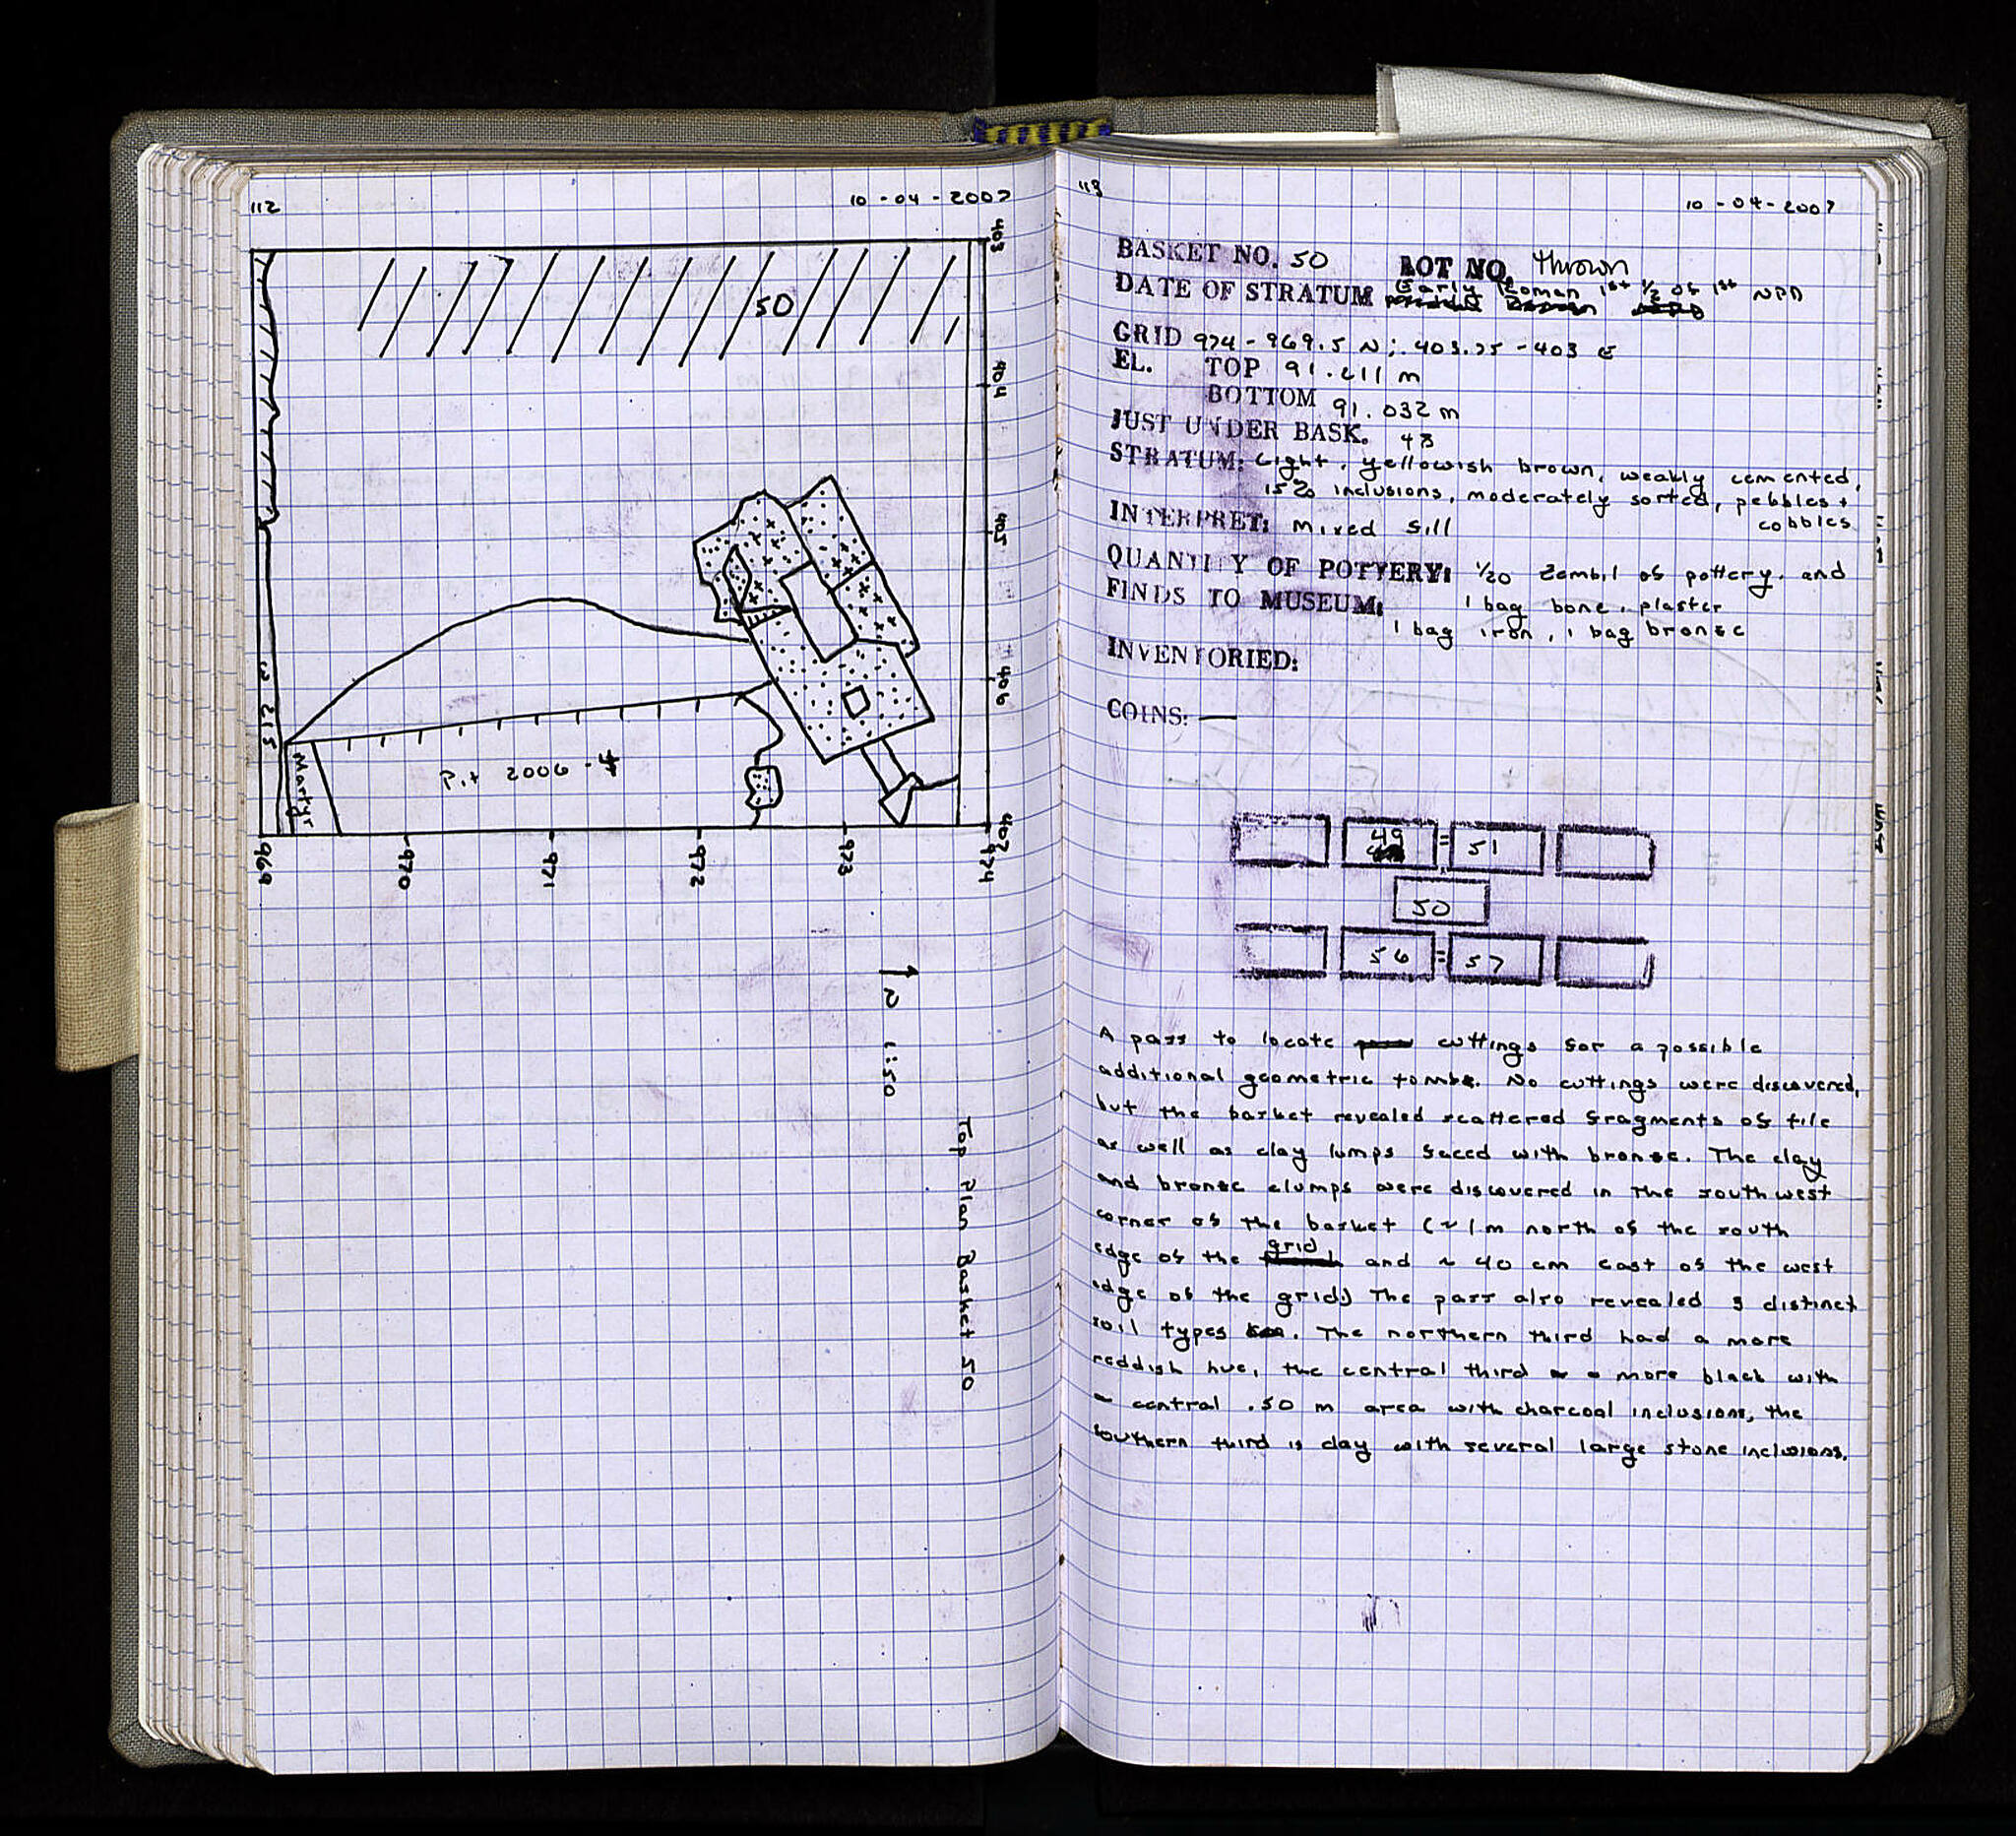 112
10-04-2007
403
50
404
405
406
Martyr
Pit 2006-4
407
969
970
971
972
973
974
N 1:50
Top Plan Basket 50
113
10-04-2007
BASKET NO. 50 LOT NO. thrown
DATE OF STRATUM Early Roman 1st 1/2 of 1st
GRID 974-969.5 N; 403.75-403 E
EL. TOP 91.211 m
BOTTOM 91.032 m
JUST UNDER BASK. 48
STRATUM: Light, yellowish brown, weakly cemented,
15% inclusions, moderately sorted, pebbles +
cobbles
INTERPRET: mixed fill
QUANTITY OF POTTERY: 1/20 Zembil of pottery, and
FINDS TO MUSEUM: 1 bag bone, plaster
1 bag iron, 1 bag bronze
INVENTORIED:
COINS: —
49 = 51
50
56 = 57
A pass to locate cuttings for a possible
additional geometric tomb. No cuttings were discovered,
but the basket revealed scattered fragments of tile
as well as clay lumps faced with bronze. The clay
and bronze clumps were discovered in the southwest
corner of the basket (~1m north of the south
edge of the grid and ~ 40 cm east of the west
edge of the grid) The pass also revealed 3 distinct
soil types. The northern third had a more
reddish hue, the central third a more black with
a central .50 m area with charcoal inclusions, the
southern third is clay with several large stone inclusions.